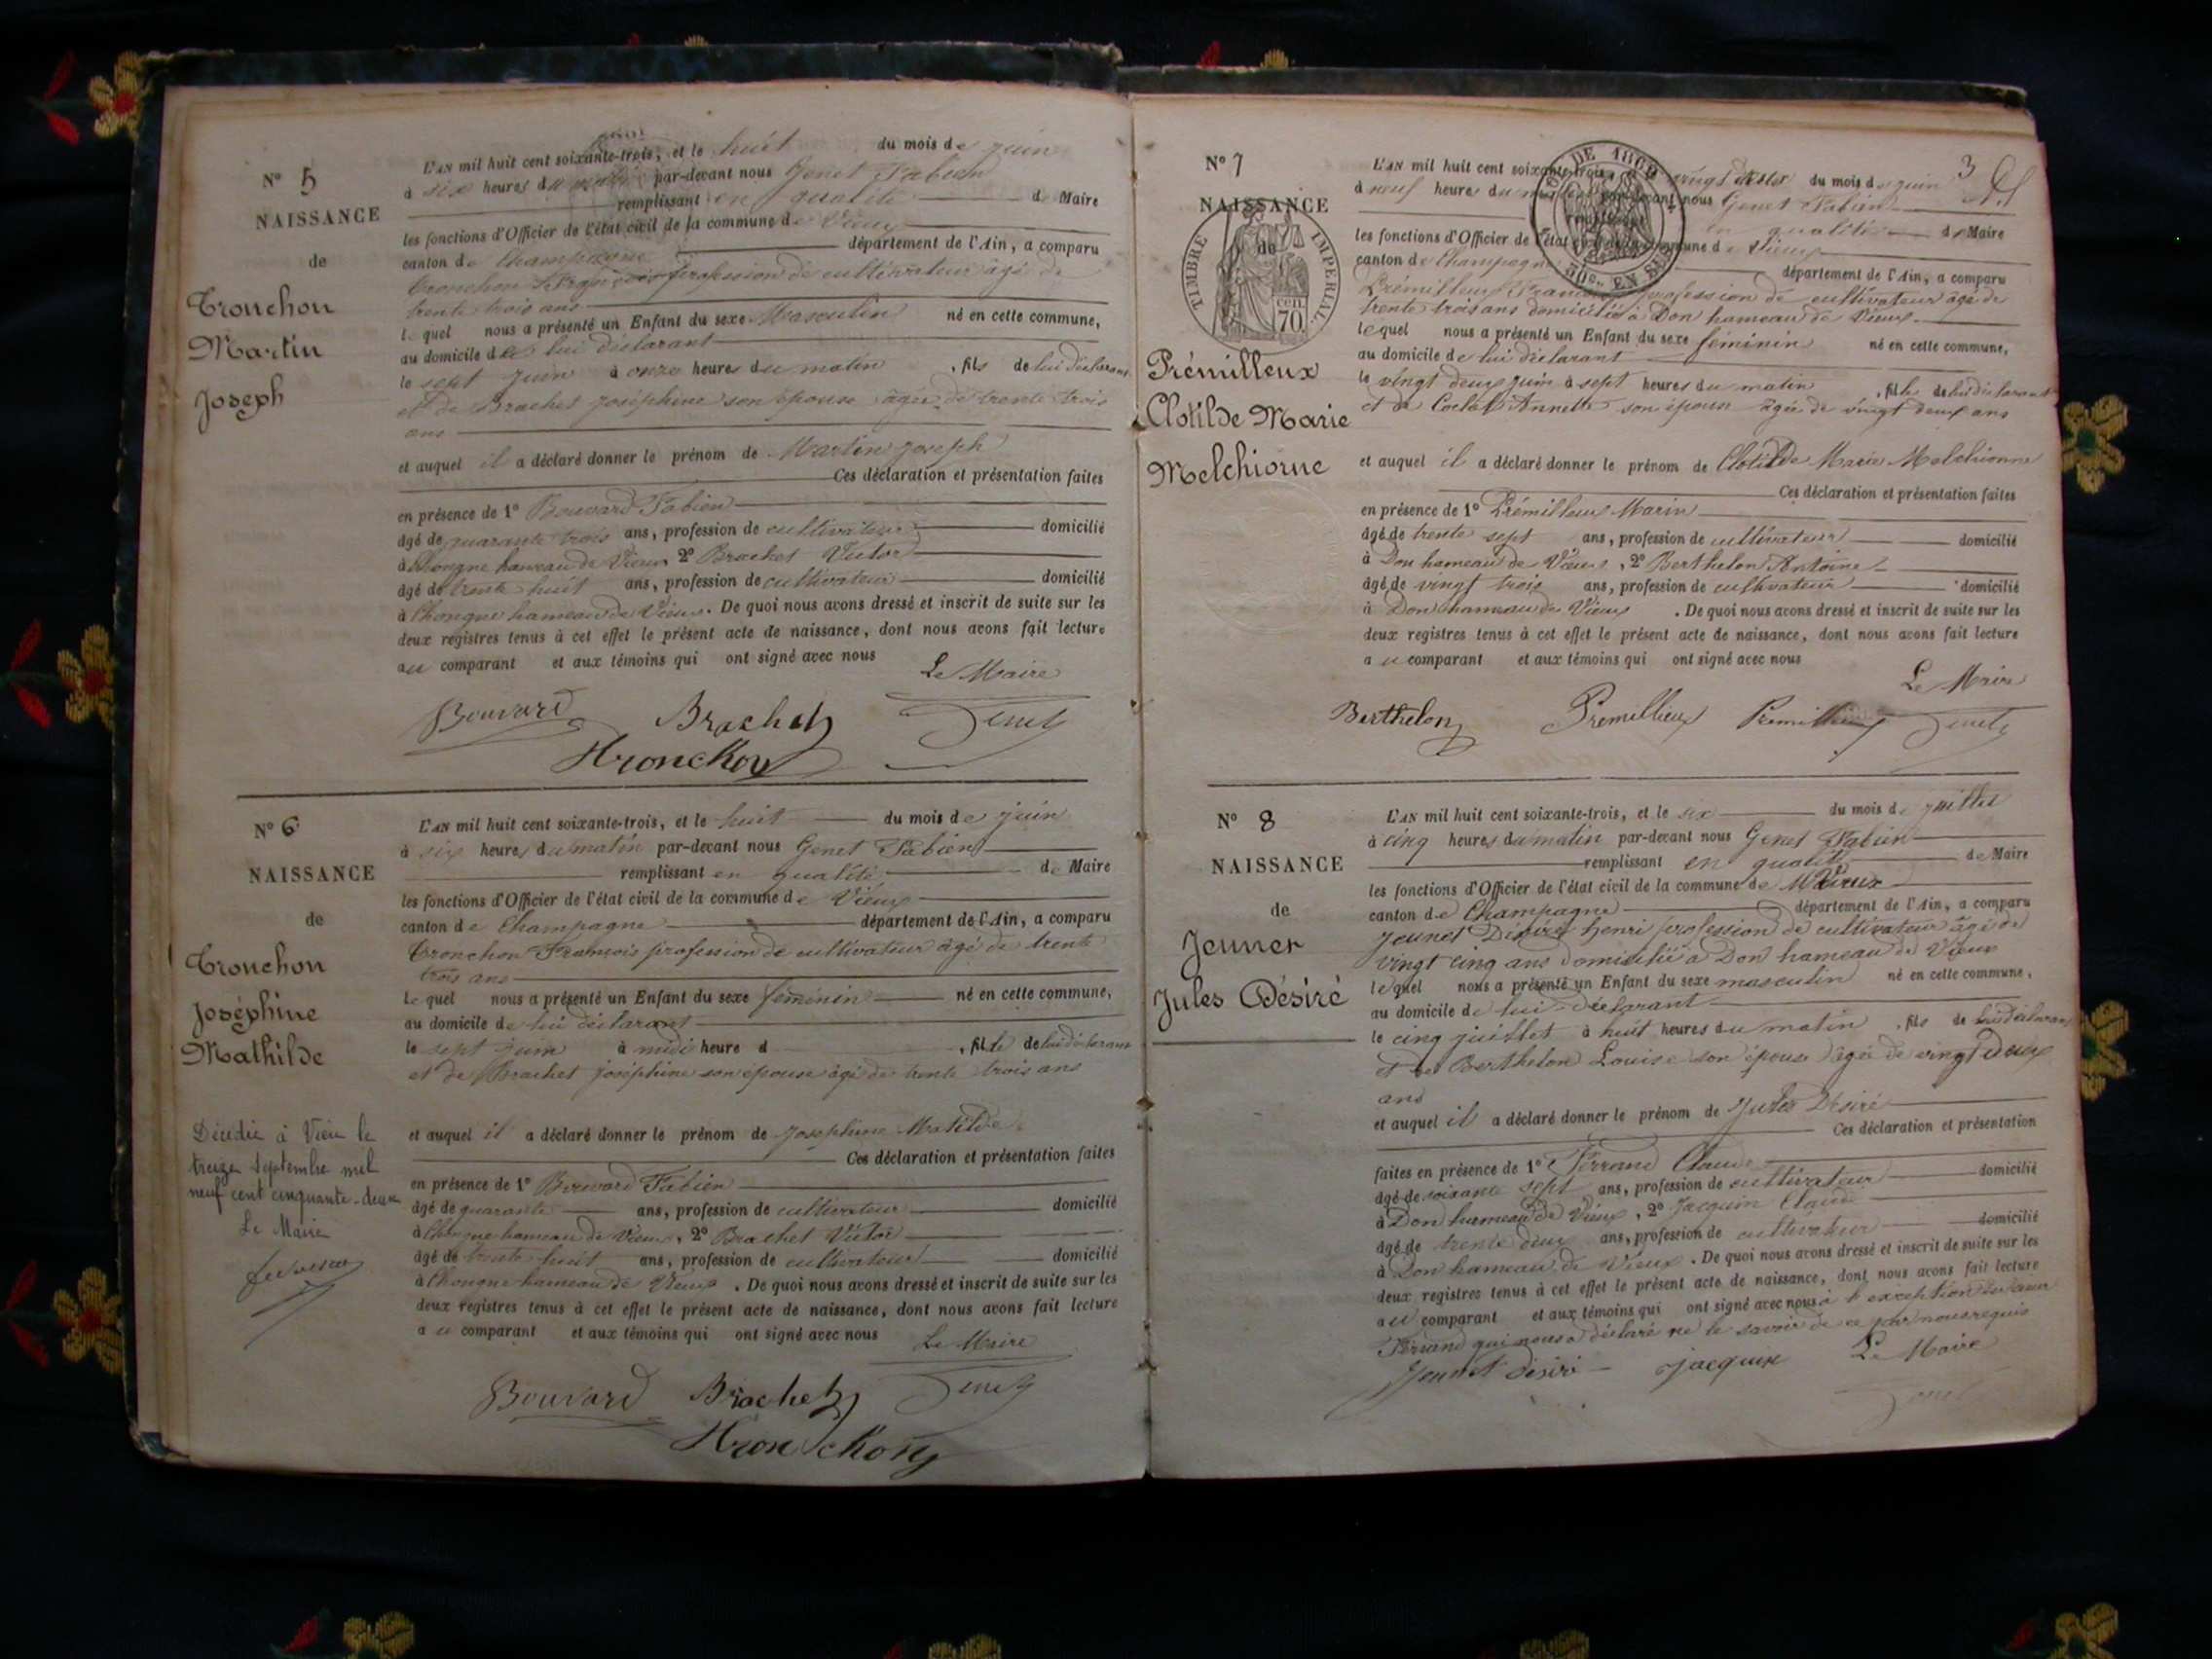 N° 5
NAISSANCE
de
Tronchon
Martin
Joseph
L'AN mil huit cent soixante-trois, et le huit du mois de juin
à six heures du matin par-devant nous Genet Fabien
remplissant en qualité de Maire
les fonctions d'Officier de l'état civil de la commune de Vieux
canton de Champagne département de l'Ain, a comparu
Tronchon François profession de cultivateur âgé de
trente trois ans
lequel nous a présenté un Enfant du sexe Masculin né en cette commune,
au domicile de lui déclarant
le sept juin à onze heures du matin, fils de lui déclarant
et de Brachet Joséphine son épouse âgée de trente trois
ans
et auquel il a déclaré donner le prénom de Martin Joseph
Ces déclaration et présentation faites
en présence de 1° Bouvard Fabien
âgé de quarante trois ans, profession de cultivateur domicilié
à Chongne hameau de Vieux 2° Brachet Victor
âgé de trente huit ans, profession de cultivateur domicilié
à Chongne hameau de Vieux. De quoi nous avons dressé et inscrit de suite sur les
deux registres tenus à cet effet le présent acte de naissance, dont nous avons fait lecture
au comparant et aux témoins qui ont signé avec nous
Le Maire
Bouvard Brachet Genet
Tronchon
N° 6
NAISSANCE
de
Tronchon
Joséphine
Mathilde
Décédée à Vieu le
treize septembre mil
neuf cent cinquante-deux
Le Maire
L'AN mil huit cent soixante-trois, et le huit du mois de juin
à six heures du matin par-devant nous Genet Fabien
remplissant en qualité de Maire
les fonctions d'Officier de l'état civil de la commune de Vieux
canton de Champagne département de l'Ain, a comparu
Tronchon François profession de cultivateur âgé de trente
trois ans
lequel nous a présenté un Enfant du sexe féminin né en cette commune,
au domicile de lui déclarant
le sept juin à midi heure d , fille de lui déclarant
et de Brachet joséphine son épouse âgé de trente trois ans
et auquel il a déclaré donner le prénom de Joséphine Matilde
Ces déclaration et présentation faites
en présence de 1° Bouvard Fabien
âgé de quarante ans, profession de cultivateur domicilié
à Chongne hameau de Vieux, 2° Brachet Victor
âgé de trente huit ans, profession de cultivateur domicilié
à Chongne hameau de Vieux. De quoi nous avons dressé et inscrit de suite sur les
deux registres tenus à cet effet le présent acte de naissance, dont nous avons fait lecture
au comparant et aux témoins qui ont signé avec nous
Le Maire
Bouvard Brachet Genet
Tronchon
N° 7
NAISSANCE
de
TIMBRE IMPERIAL
cen.
70
Prémilleux
Clotilde Marie
Melchiorne
3
LOI DE 1862
50c. EN SUS
L'AN mil huit cent soixante-trois, et le vingt deux du mois de juin
à neuf heures du matin par-devant nous Genet Fabien
remplissant en qualité de Maire
les fonctions d'Officier de l'état civil de la commune de Vieux
canton de Champagne département de l'Ain, a comparu
Prémilleux François profession de cultivateur âgé de
trente trois ans domicilié à Don hameau de Vieux
lequel nous a présenté un Enfant du sexe féminin né en cette commune,
au domicile de lui déclarant
le vingt deux juin à sept heures du matin, fille de lui déclarant
et de Annette son épouse âgée de vingt deux ans
et auquel il a déclaré donner le prénom de Clotilde Marie Melchionne
Ces déclaration et présentation faites
en présence de 1° Prémilleux Marin
âgé de trente sept ans, profession de cultivateur domicilié
à Don hameau de Vieux, 2° Berthelon Antoine
âgé de vingt trois ans, profession de cultivateur domicilié
à Don hameau de Vieux. De quoi nous avons dressé et inscrit de suite sur les
deux registres tenus à cet effet le présent acte de naissance, dont nous avons fait lecture
au comparant et aux témoins qui ont signé avec nous
Le Maire
Berthelon Premillieux Premillieux Genet
N° 8
NAISSANCE
de
Jeunet
Jules Désiré
L'AN mil huit cent soixante-trois, et le six du mois de juillet
à cinq heures du matin par-devant nous Genet Fabien
remplissant en qualité de Maire
les fonctions d'Officier de l'état civil de la commune de Vieux
canton de Champagne département de l'Ain, a comparu
Jeunet Désiré henri profession de cultivateur âgé de
vingt cinq ans domicilié à Don hameau de Vieux
lequel nous a présenté un Enfant du sexe masculin né en cette commune,
au domicile de lui déclarant
le cinq juillet à huit heures du matin, fils de lui déclarant
et de Berthelon Louise son épouse âgée de vingt deux
ans
et auquel il a déclaré donner le prénom de Jules Désiré
Ces déclaration et présentation
faites en présence de 1° Ferrand Claude
âgé de soixante sept ans, profession de cultivateur domicilié
à Don hameau de Vieux, 2° Jacquin Claude
âgé de trente deux ans, profession de cultivateur domicilié
à Don hameau de Vieux. De quoi nous avons dressé et inscrit de suite sur les
deux registres tenus à cet effet le présent acte de naissance, dont nous avons fait lecture
au comparant et aux témoins qui ont signé avec nous à l'exception du sieur
Ferrand qui nous a déclaré ne le savoir de ce par nous requis
Le Maire
Jeunet désiré jacquin Genet